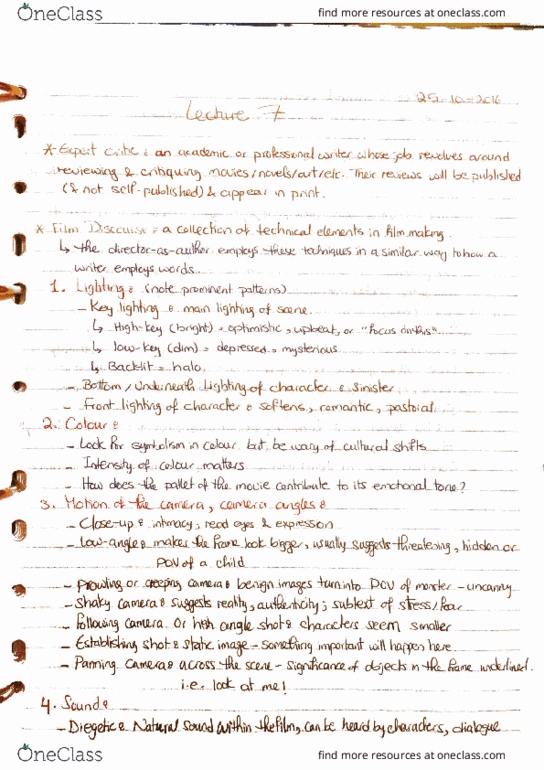 OneClass find more resources at oneclass.com
25-10-2016
Lecture 7
* Expert critic: an academic or professional writer whose job revolves around
reviewing & critiquing movies/novels/art/etc. Their reviews will be published
(& not self-published) & appear in print.
* Film Discourse: a collection of technical elements in film making.
↳ the director-as-author employs these techniques in a similar way to how a
writer employs words.
1. Lighting: (note prominent patterns)
- Key lighting: main lighting of scene.
↳ High-key (bright) = optimistic, upbeat, or "focus on this"
↳ low-key (dim) = depressed, mysterious
↳ Backlit = halo
- Bottom/Underneath lighting of character: sinister
- Front lighting of character: softens, romantic, pastoral
2. Colour:
- Look for symbolism in colour but be wary of cultural shifts
- Intensity of colour matters
- How does the pallet of the movie contribute to its emotional tone?
3. Motion of the camera, camera angles:
- Close-up: intimacy; read eyes & expression
- Low-angle: makes the frame look bigger, usually suggests threatening, hidden or
POV of a child
- Prowling or creeping camera: benign images turn into POV of monster - uncanny
- Shaky camera: suggests reality, authenticity; subtext of stress/fear
- Following camera or high angle shot: characters seem smaller
- Establishing shot: static image - something important will happen here
- Panning camera: across the scene - significance of objects in the frame underlined.
i.e. look at me!
4. Sound:
- Diegetic: Natural sound within the film, can be heard by characters, dialogue
OneClass find more resources at oneclass.com